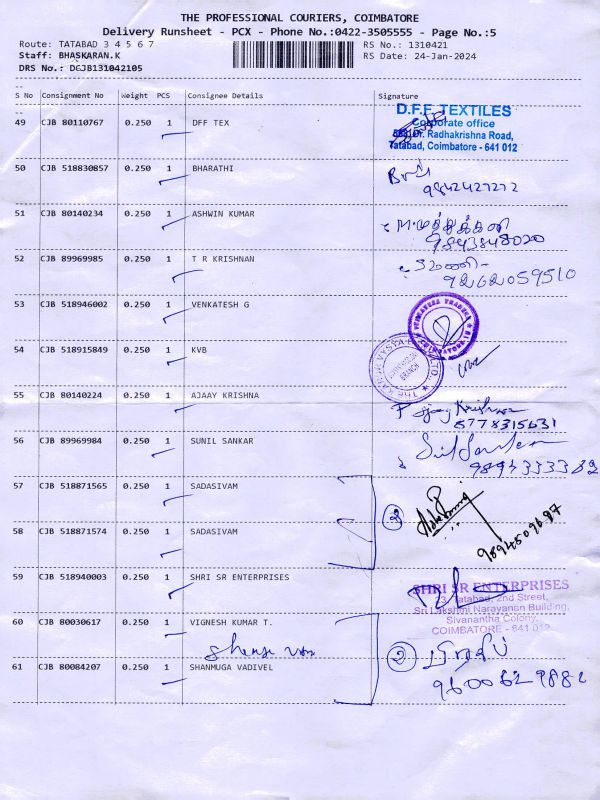 THE PROFESSIONAL COURIERS, COIMBATORE
Delivery Runsheet - PCX - Phone No.:0422-3505555 - Page No.:5
Route: TATABAD 3 4 5 6 7 RS No.: 1310421
Staff: BHASKARAN.K RS Date: 24-Jan-2024
DRS No.: DCJB131042105
S No Consignment No Weight PCS Consignee Details Signature
D.F.F. TEXTILES
49 CJB 80110767 0.250 1 DFF TEX Corporate office
Dr. Radhakrishna Road,
Tatabad, Coimbatore - 641 012
50 CJB 518830857 0.250 1 BHARATHI
51 CJB 80140234 0.250 1 ASHWIN KUMAR
9843848020
52 CJB 89969985 0.250 1 T R KRISHNAN
53 CJB 518946002 0.250 1 VENKATESH G
54 CJB 518915849 0.250 1 KVB
BRANCH
55 CJB 80140224 0.250 1 AJAAY KRISHNA
Ajay Krishna
56 CJB 89969984 0.250 1 SUNIL SANKAR
57 CJB 518871565 0.250 1 SADASIVAM
58 CJB 518871574 0.250 1 SADASIVAM
59 CJB 518940003 0.250 1 SHRI SR ENTERPRISES SHRI SR ENTERPRISES
Tatabad, 2nd Street,
Sri Lakshmi Narayanan Building,
Sivanantha Colony,
COIMBATORE - 641 012
60 CJB 80030617 0.250 1 VIGNESH KUMAR T.
② பிரதீப்
61 CJB 80084207 0.250 1 SHANMUGA VADIVEL